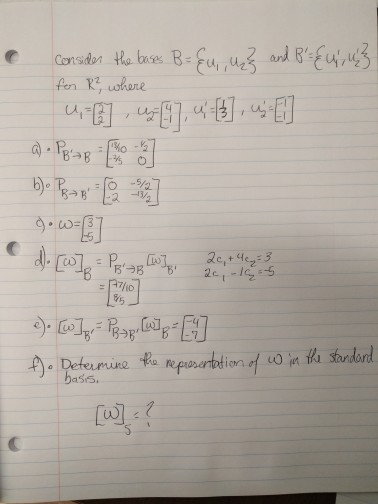 Consider the bases B = {u₁, u₂} and B' = {u₁', u₂'}
for R², where
u₁ = [2 2], u₂ = [4 -1], u₁' = [1 3], u₂' = [-1 -1]
a) • P_B'→B = [13/10 -1/2; -2/5 0]
b) • P_B→B' = [0 -5/2; -2 -13/2]
c) • w = [3 -5]
d) • [w]_B = P_B'→B [w]_B' 2c₁ + 4c₂ = 3
= [-17/10 8/5] 2c₁ - 1c₂ = -5
e) • [w]_B' = P_B→B' [w]_B = [-4 -7]
f) • Determine the representation of w in the standard
basis.
[w]_S = ?